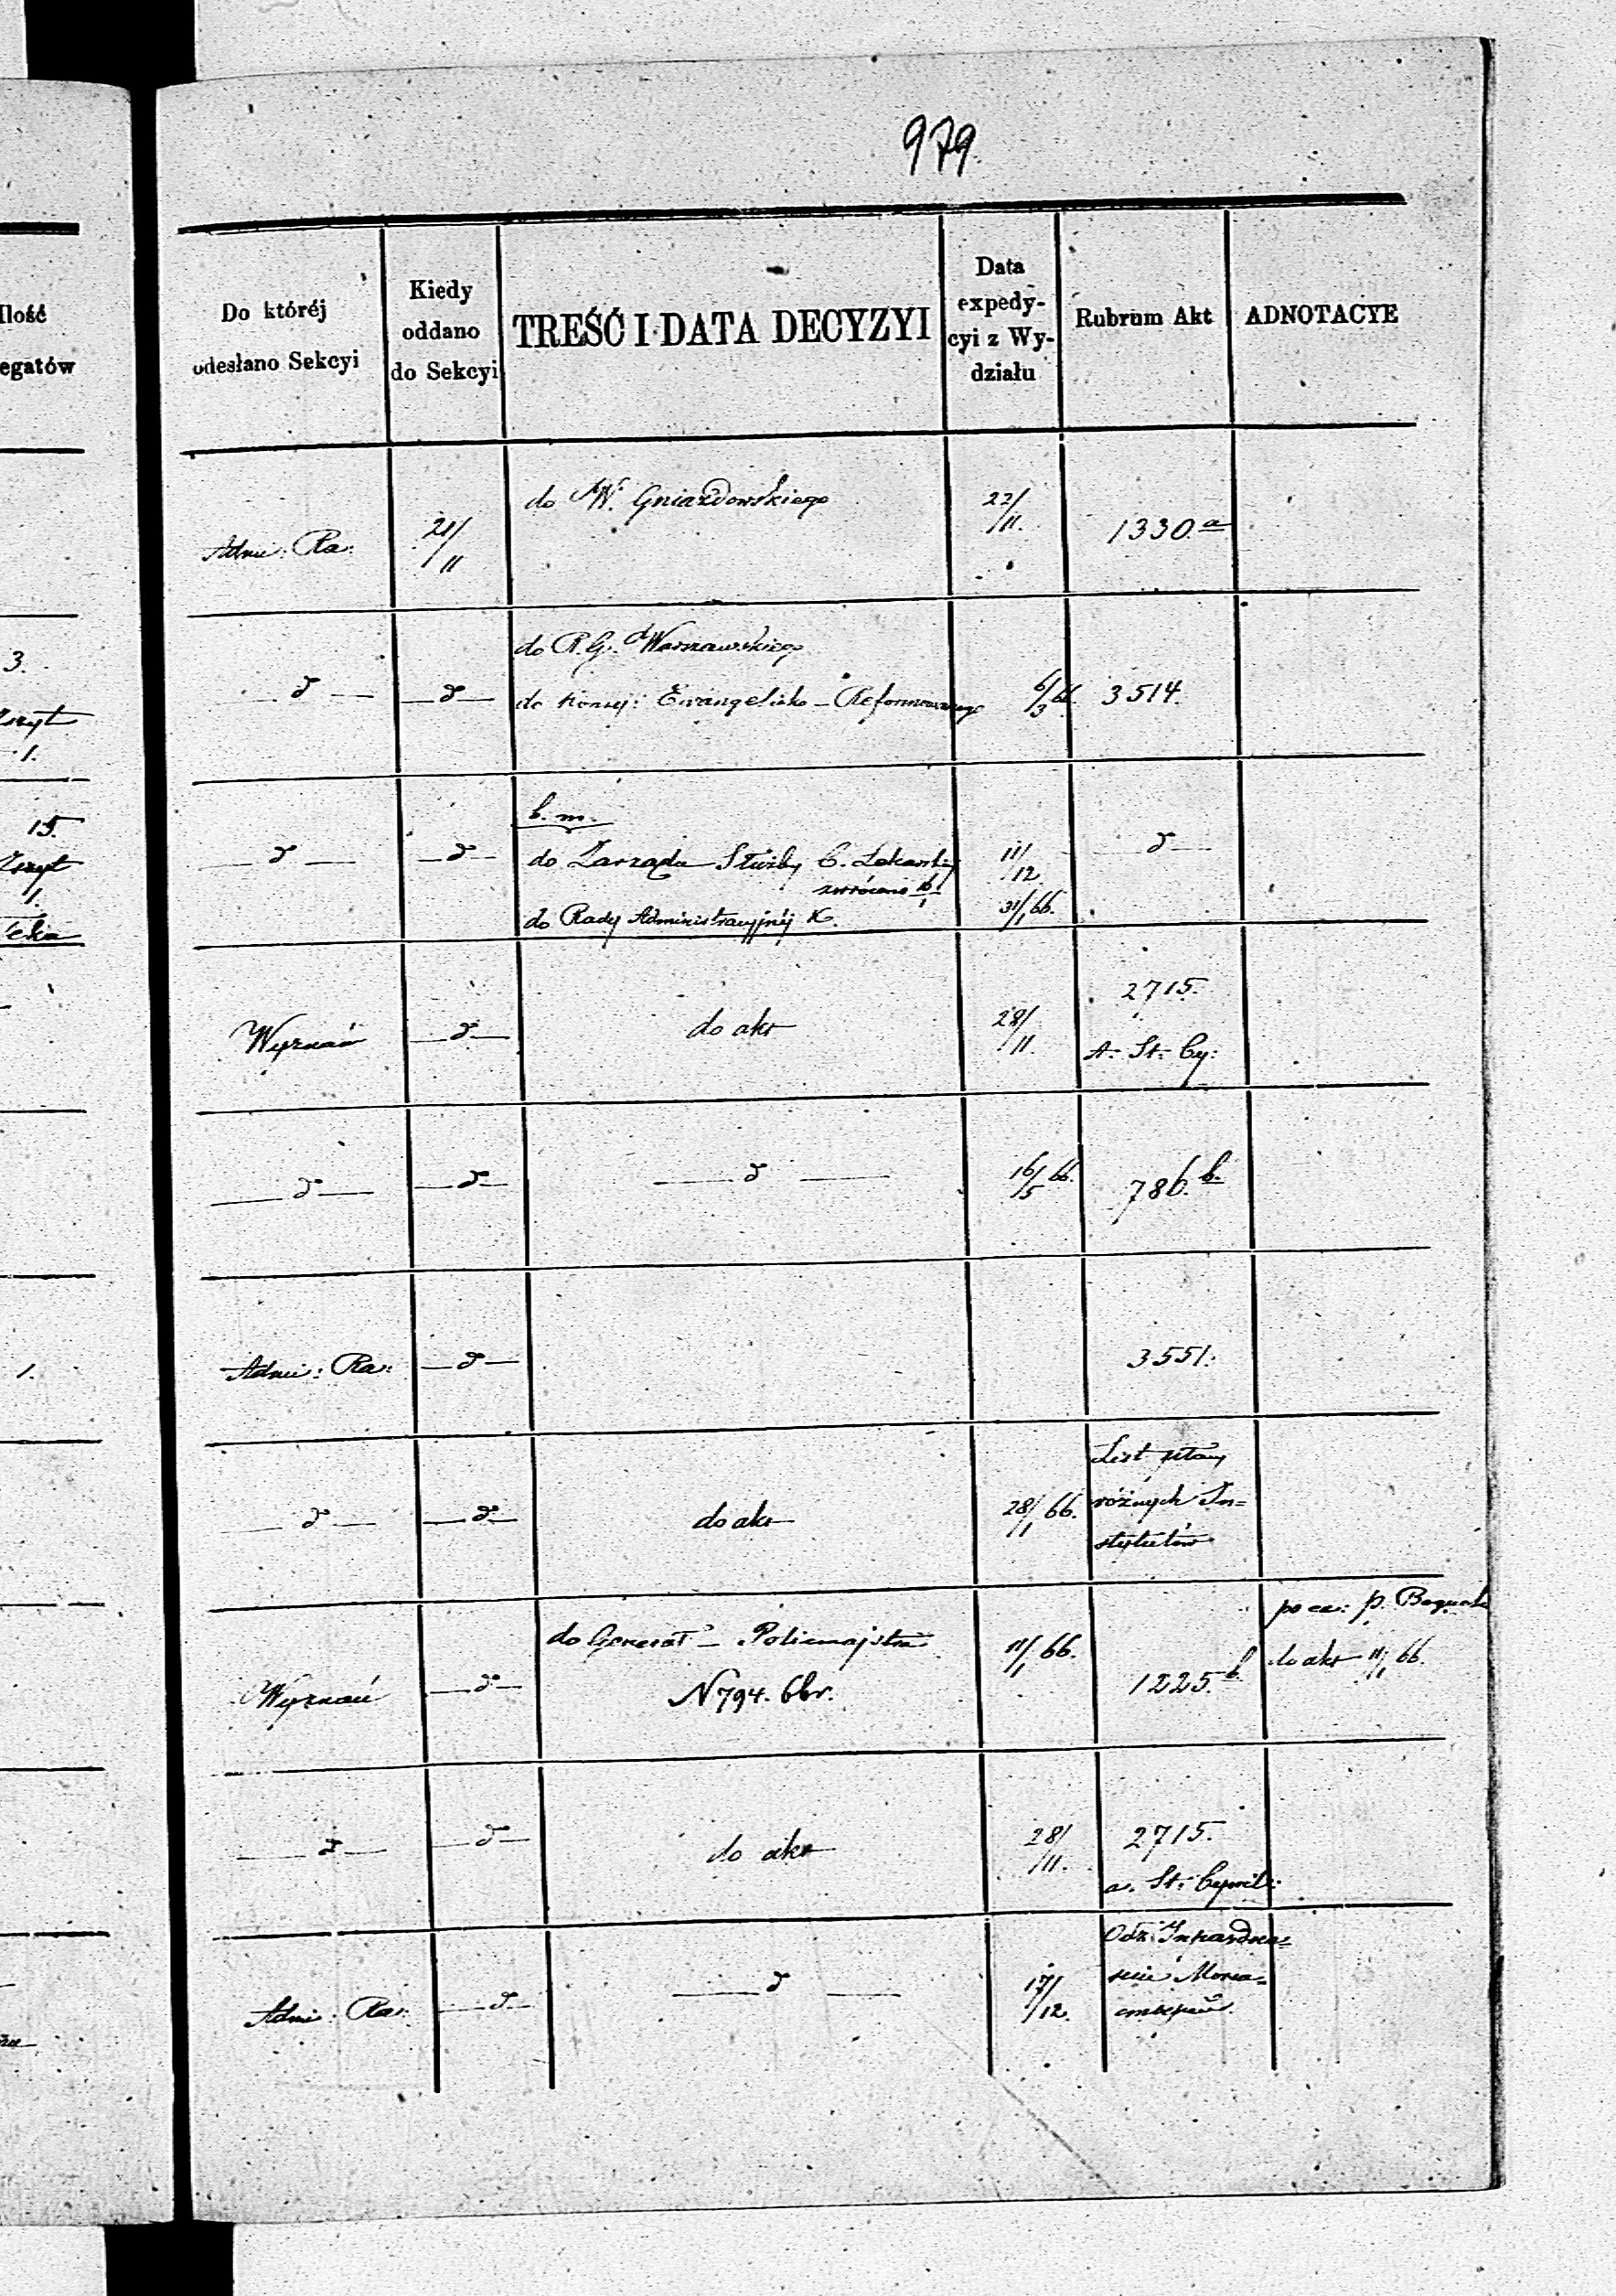 979.
Ilość
egatów
Do któréj
odesłano Sekcyi
Kiedy
oddano
do Sekcyi
TREŚĆ I DATA DECYZYI
Data
expedy-
cyi z Wy-
działu
Rubrum Akt
ADNOTACYE
Admi: Ra:
21/11
do W. Gniazdowskiego
22/11.
1330.a
3.
Zszyt
1.
— d —
— d —
do R. G. Warszawskiego
do Konsy: Ewangelicko-Reformowanego
6/3 66.
3514.
15.
Zszyt
1.
Teka
— d —
— d —
b. m.
do Zarządu Służby C. Lekarskiej
zwrócono
do Rady Administracyjnéj K.
11/12
31/1 66.
— d —
Wyznań
— d —
do akt
28/11.
2715.
A. St. Cy:
— d —
— d —
— d —
16/5 66.
786.b.
1.
Admi: Ra:
— d —
3551.
— d —
— d —
do akt
28/1 66.
List
różnych In=
stytutów
Wyznań
— d —
do Generał-Policmajstra
N 794. 66r.
11/1 66.
1225.b
p.
do akt 11/1 66.
— d —
— d —
do akt
28/11.
2715.
a. St. Cywil:
Admi: Ra:
— d —
— d —
17/12.